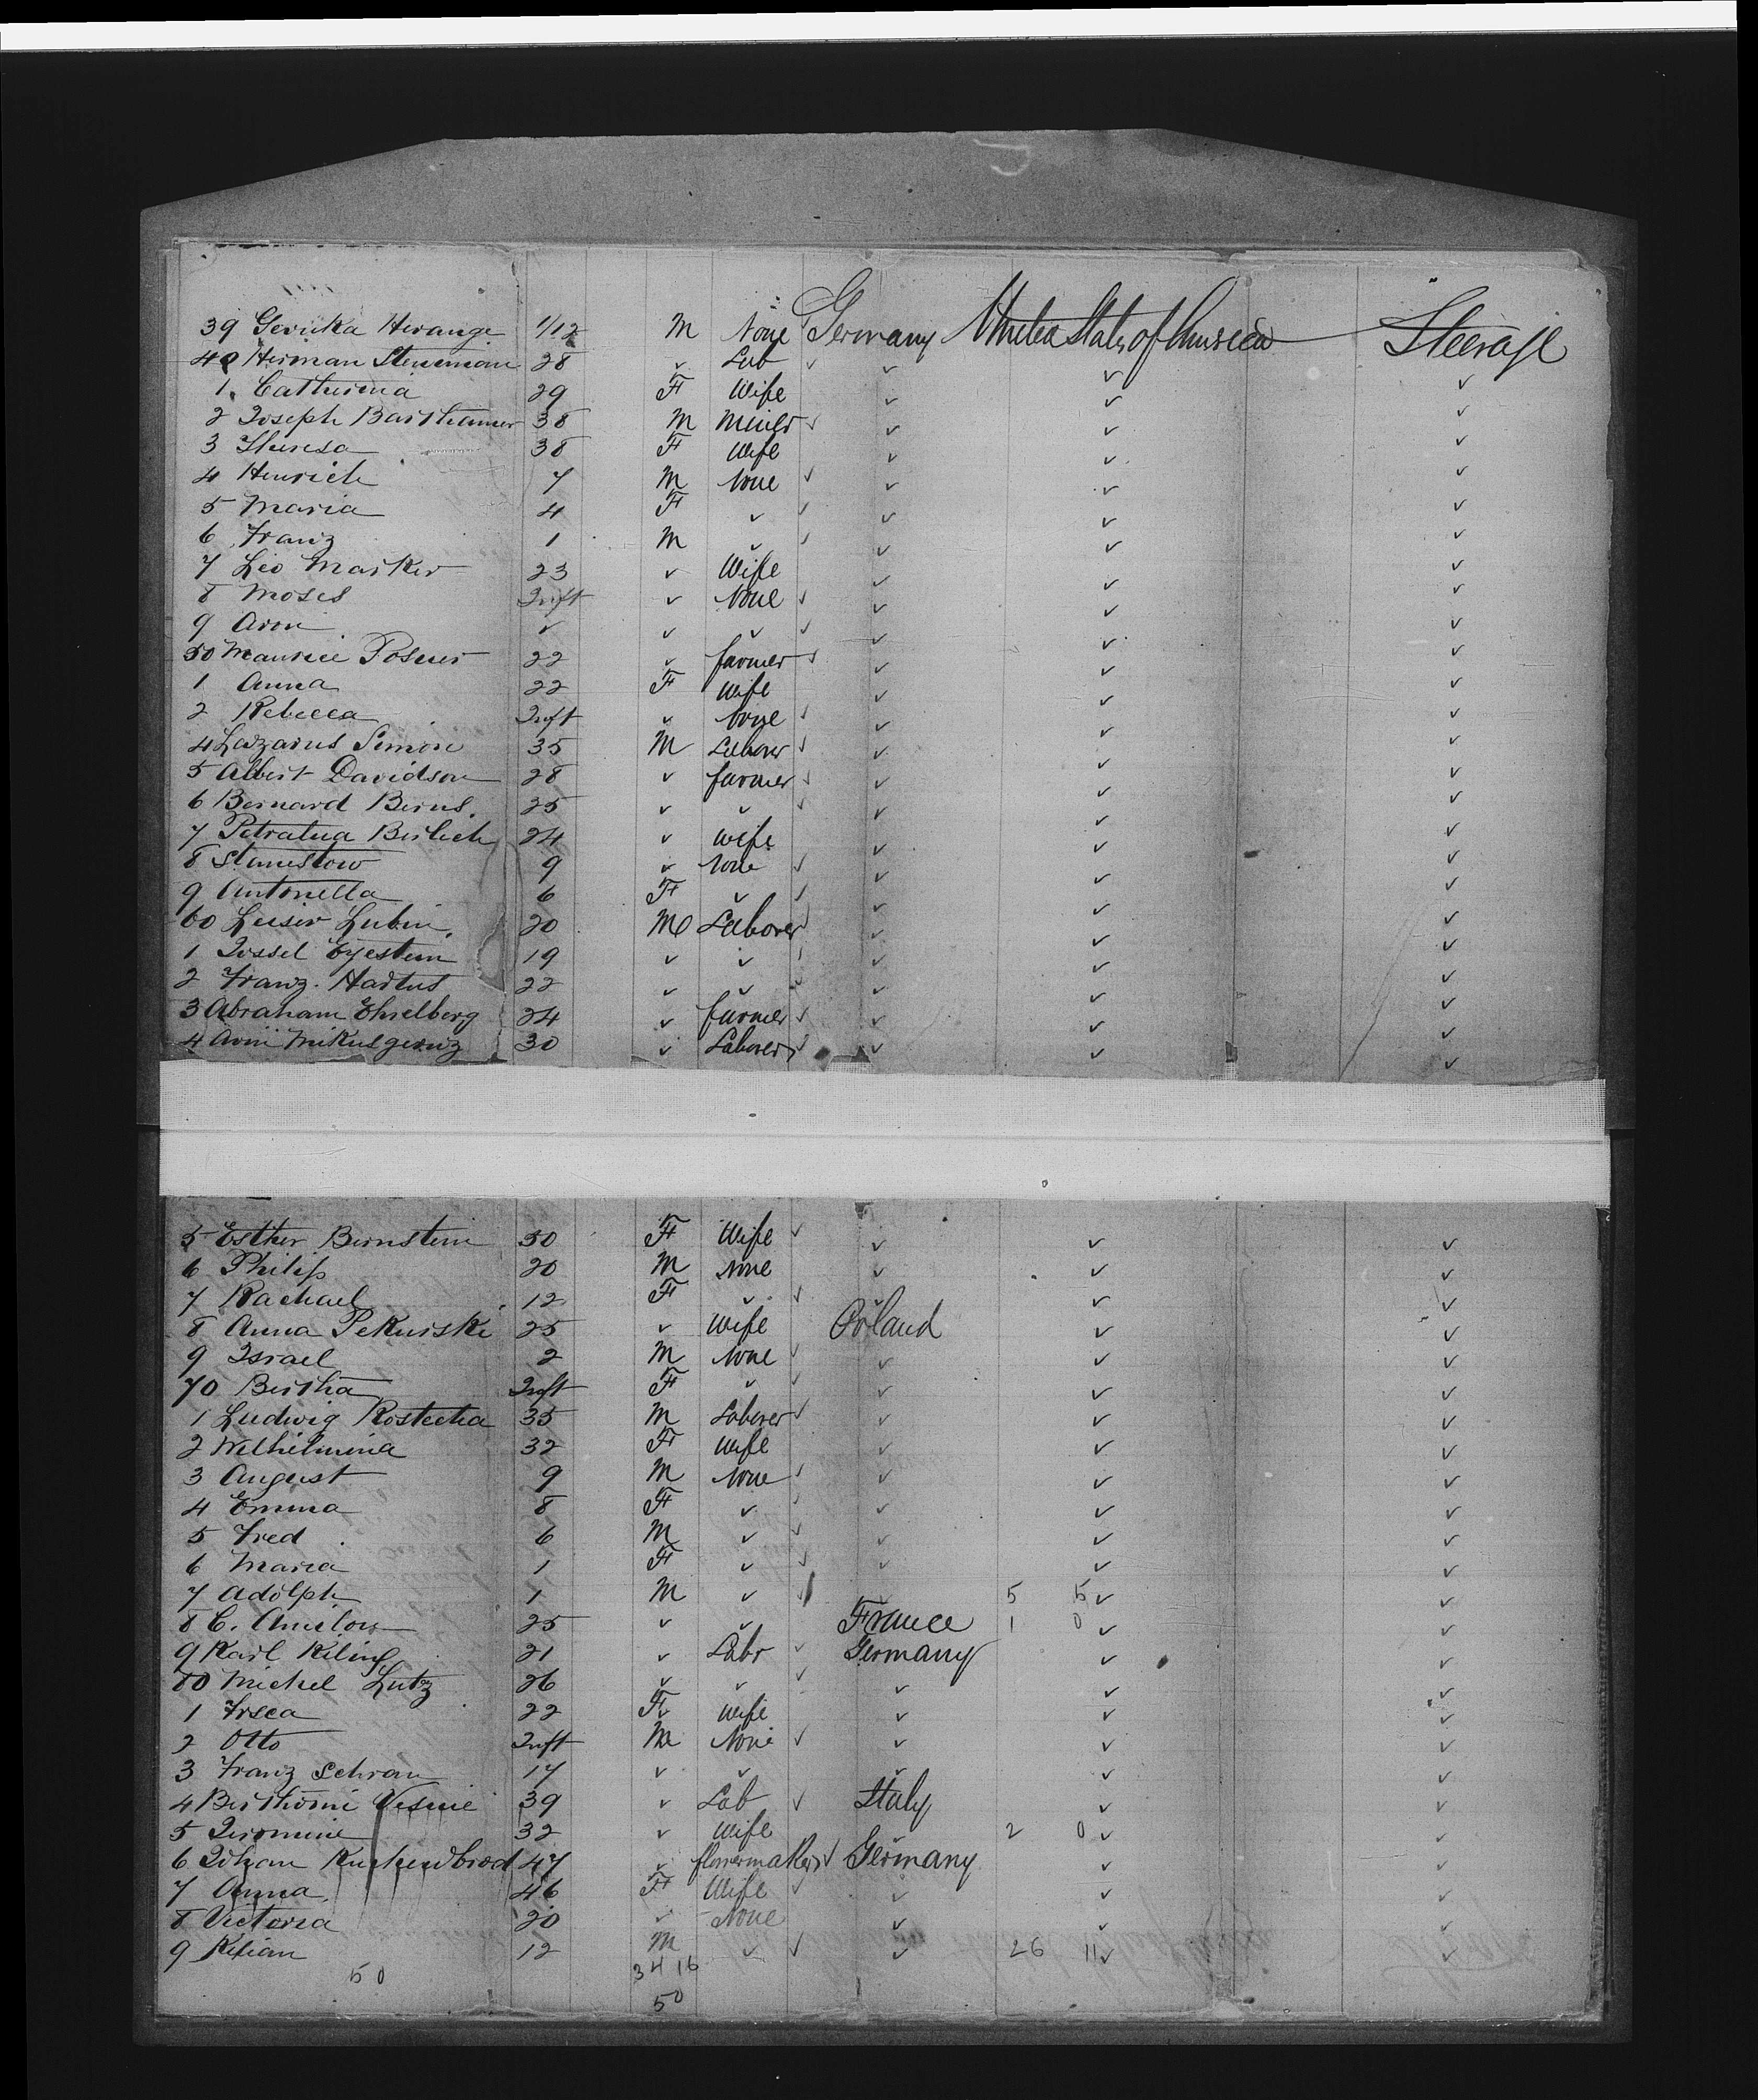 39 Geruka Herange 1/12 M None Germany United States of America Steerage
40 Herman Steneman 28 ✓ Lab ✓ ✓ ✓ ✓
1 Catherina 29 F Wife ✓ ✓ ✓
2 Joseph Barthamer 38 M Miner ✓ ✓ ✓ ✓
3 Theresa 38 F Wife ✓ ✓ ✓
4 Henrich 7 M None ✓ ✓ ✓ ✓
5 Maria 4 F ✓ ✓ ✓ ✓ ✓
6 Franz 1 M ✓ ✓ ✓ ✓ ✓
7 Leo Marker 23 ✓ Wife ✓ ✓ ✓
8 Moses Inft ✓ None ✓ ✓ ✓ ✓
9 Aron ✓ ✓ ✓ ✓ ✓ ✓ ✓
50 Maurice Posner 22 ✓ farmer ✓ ✓ ✓ ✓
1 Anna 22 F Wife ✓ ✓ ✓
2 Rebecca Inft ✓ None ✓ ✓ ✓ ✓
4 Lazarus Simon 35 M Laborer ✓ ✓ ✓ ✓
5 Albert Davidson 28 ✓ farmer ✓ ✓ ✓ ✓
6 Bernard Berns 25 ✓ ✓ ✓ ✓ ✓ ✓
7 Petralua Berlich 24 ✓ wife ✓ ✓ ✓
8 Stanislow 9 ✓ None ✓ ✓ ✓ ✓
9 Antonella 6 F ✓ ✓ ✓ ✓ ✓
60 Leiser Lubin 20 M Laborer ✓ ✓ ✓
1 Jossel Eyestein 19 ✓ ✓ ✓ ✓ ✓ ✓
2 Franz Hartus 22 ✓ ✓ ✓ ✓ ✓ ✓
3 Abraham Ehrelberg 24 ✓ farmer ✓ ✓ ✓ ✓
4 30 ✓ Laborer ✓ ✓ ✓ ✓
5 Esther Bernstein 30 F Wife ✓ ✓ ✓ ✓
6 Philip 20 M None ✓ ✓ ✓
7 Rachael 12 F ✓ ✓ ✓ ✓ ✓
8 Anna Pekurski 25 ✓ Wife Poland ✓ ✓
9 Israel 2 M None ✓ ✓ ✓ ✓
70 Bertha Inft F ✓ ✓ ✓ ✓ ✓
1 Ludwig Rostecka 35 M Laborer ✓ ✓ ✓ ✓
2 Wilhelmina 32 F Wife ✓ ✓ ✓
3 August 9 M None ✓ ✓ ✓ ✓
4 Emma 8 F ✓ ✓ ✓ ✓ ✓
5 Fred 6 M ✓ ✓ ✓ ✓ ✓
6 Maria 1 F ✓ ✓ ✓ ✓ ✓
7 Adolph 1 M ✓ ✓ 5 5 ✓ ✓
8 C. Amilow 25 ✓ ✓ France 1 0 ✓ ✓
9 Karl Kiling 21 ✓ Labr ✓ Germany ✓ ✓
80 Michel Lutz 26 ✓ ✓ ✓ ✓ ✓ ✓
1 22 F Wife ✓ ✓ ✓
2 Otto Inft M None ✓ ✓ ✓ ✓
3 Franz Schran 17 ✓ ✓ ✓ ✓ ✓
4 39 ✓ Lab ✓ Italy ✓ ✓
5 Jeromine 32 ✓ Wife 2 0 ✓ ✓
6 Johan Kuchenbrod 47 ✓ flowermaker ✓ Germany ✓ ✓
7 Anna 46 F Wife ✓ ✓ ✓ ✓
8 Victoria 20 ✓ None ✓ ✓ ✓
9 Kilian 12 M ✓ ✓ ✓ 26 11 ✓ ✓
50 34 16
50